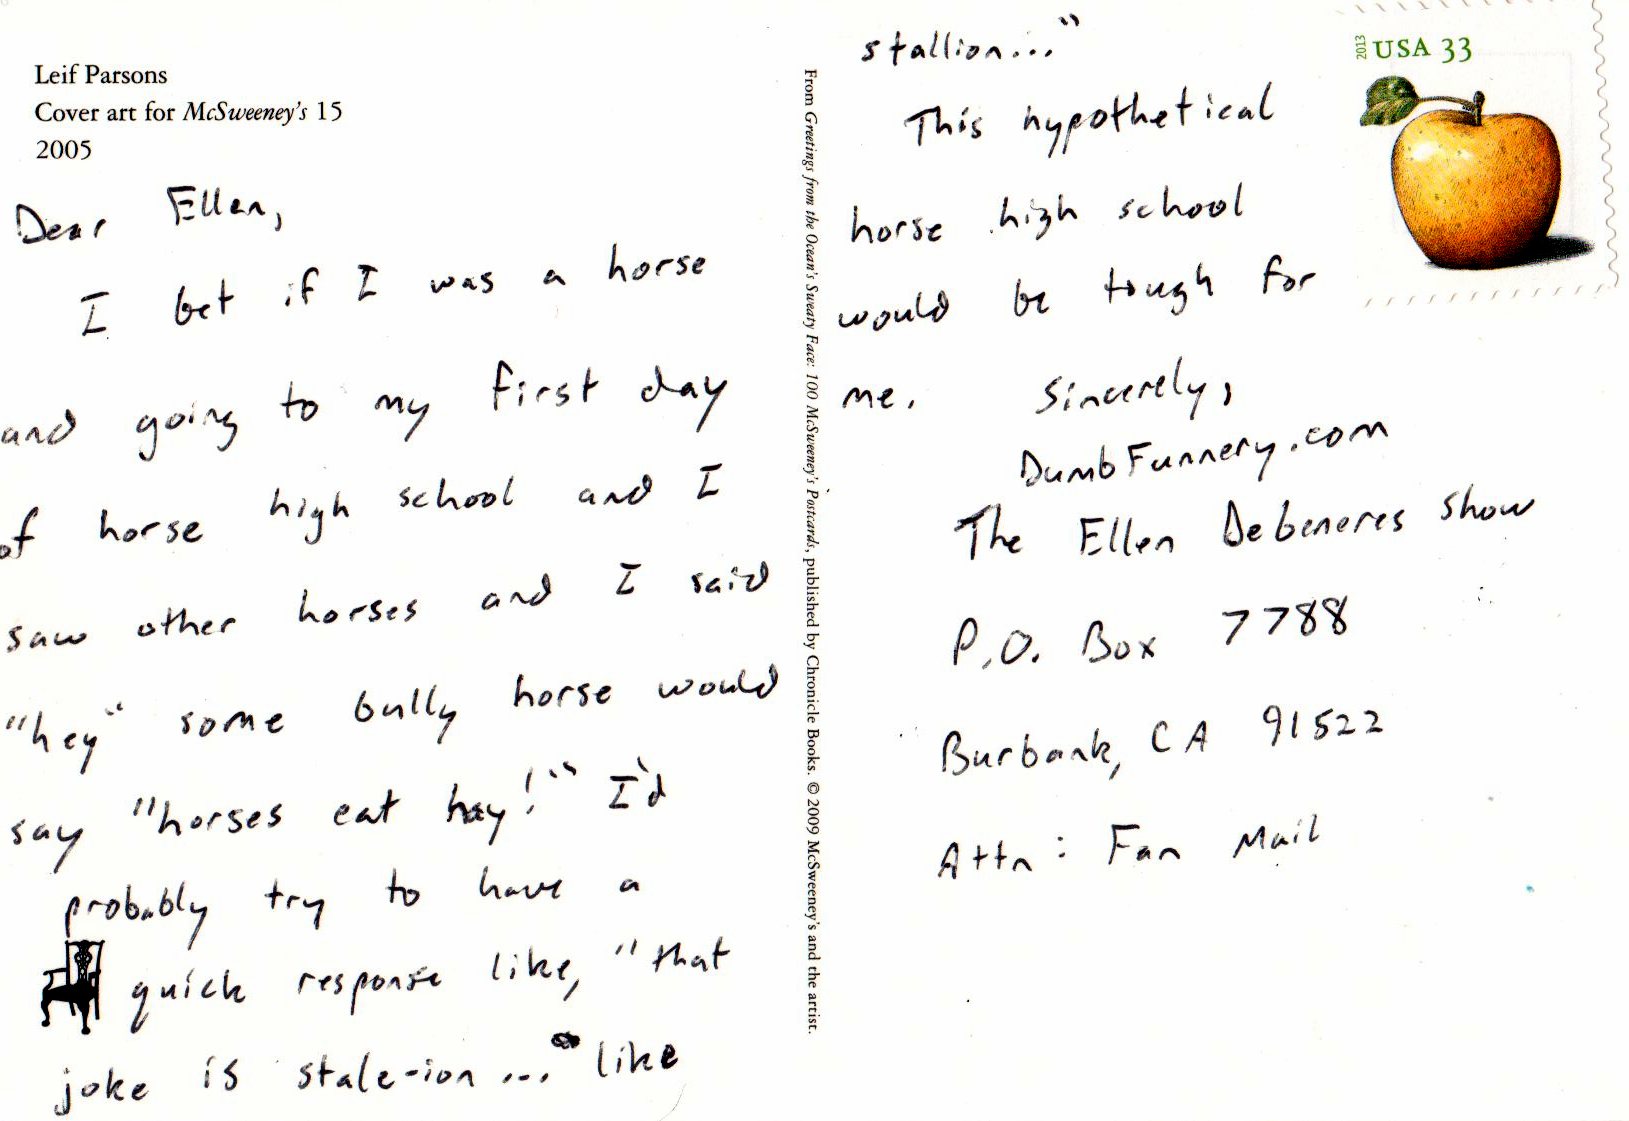 Leif Parsons
Cover art for McSweeney's 15
2005
Dear Ellen,
I bet if I was a horse
and going to my first day
of horse high school and I
saw other horses and I said
"hey" some bully horse would
say "horses eat hay!" I'd
probably try to have a
quick response like, "that
joke is stale-ion... like
From Greetings from the Ocean's Sweaty Face: 100 McSweeney's Postcards, published by Chronicle Books. © 2009 McSweeney's and the artist.
stallion..."
This hypothetical
horse high school
would be tough for
me. Sincerely,
DumbFunnery.com
2013 USA 33
The Ellen Debeneres Show
P.O. Box 7788
Burbank, CA 91522
Attn: Fan Mail